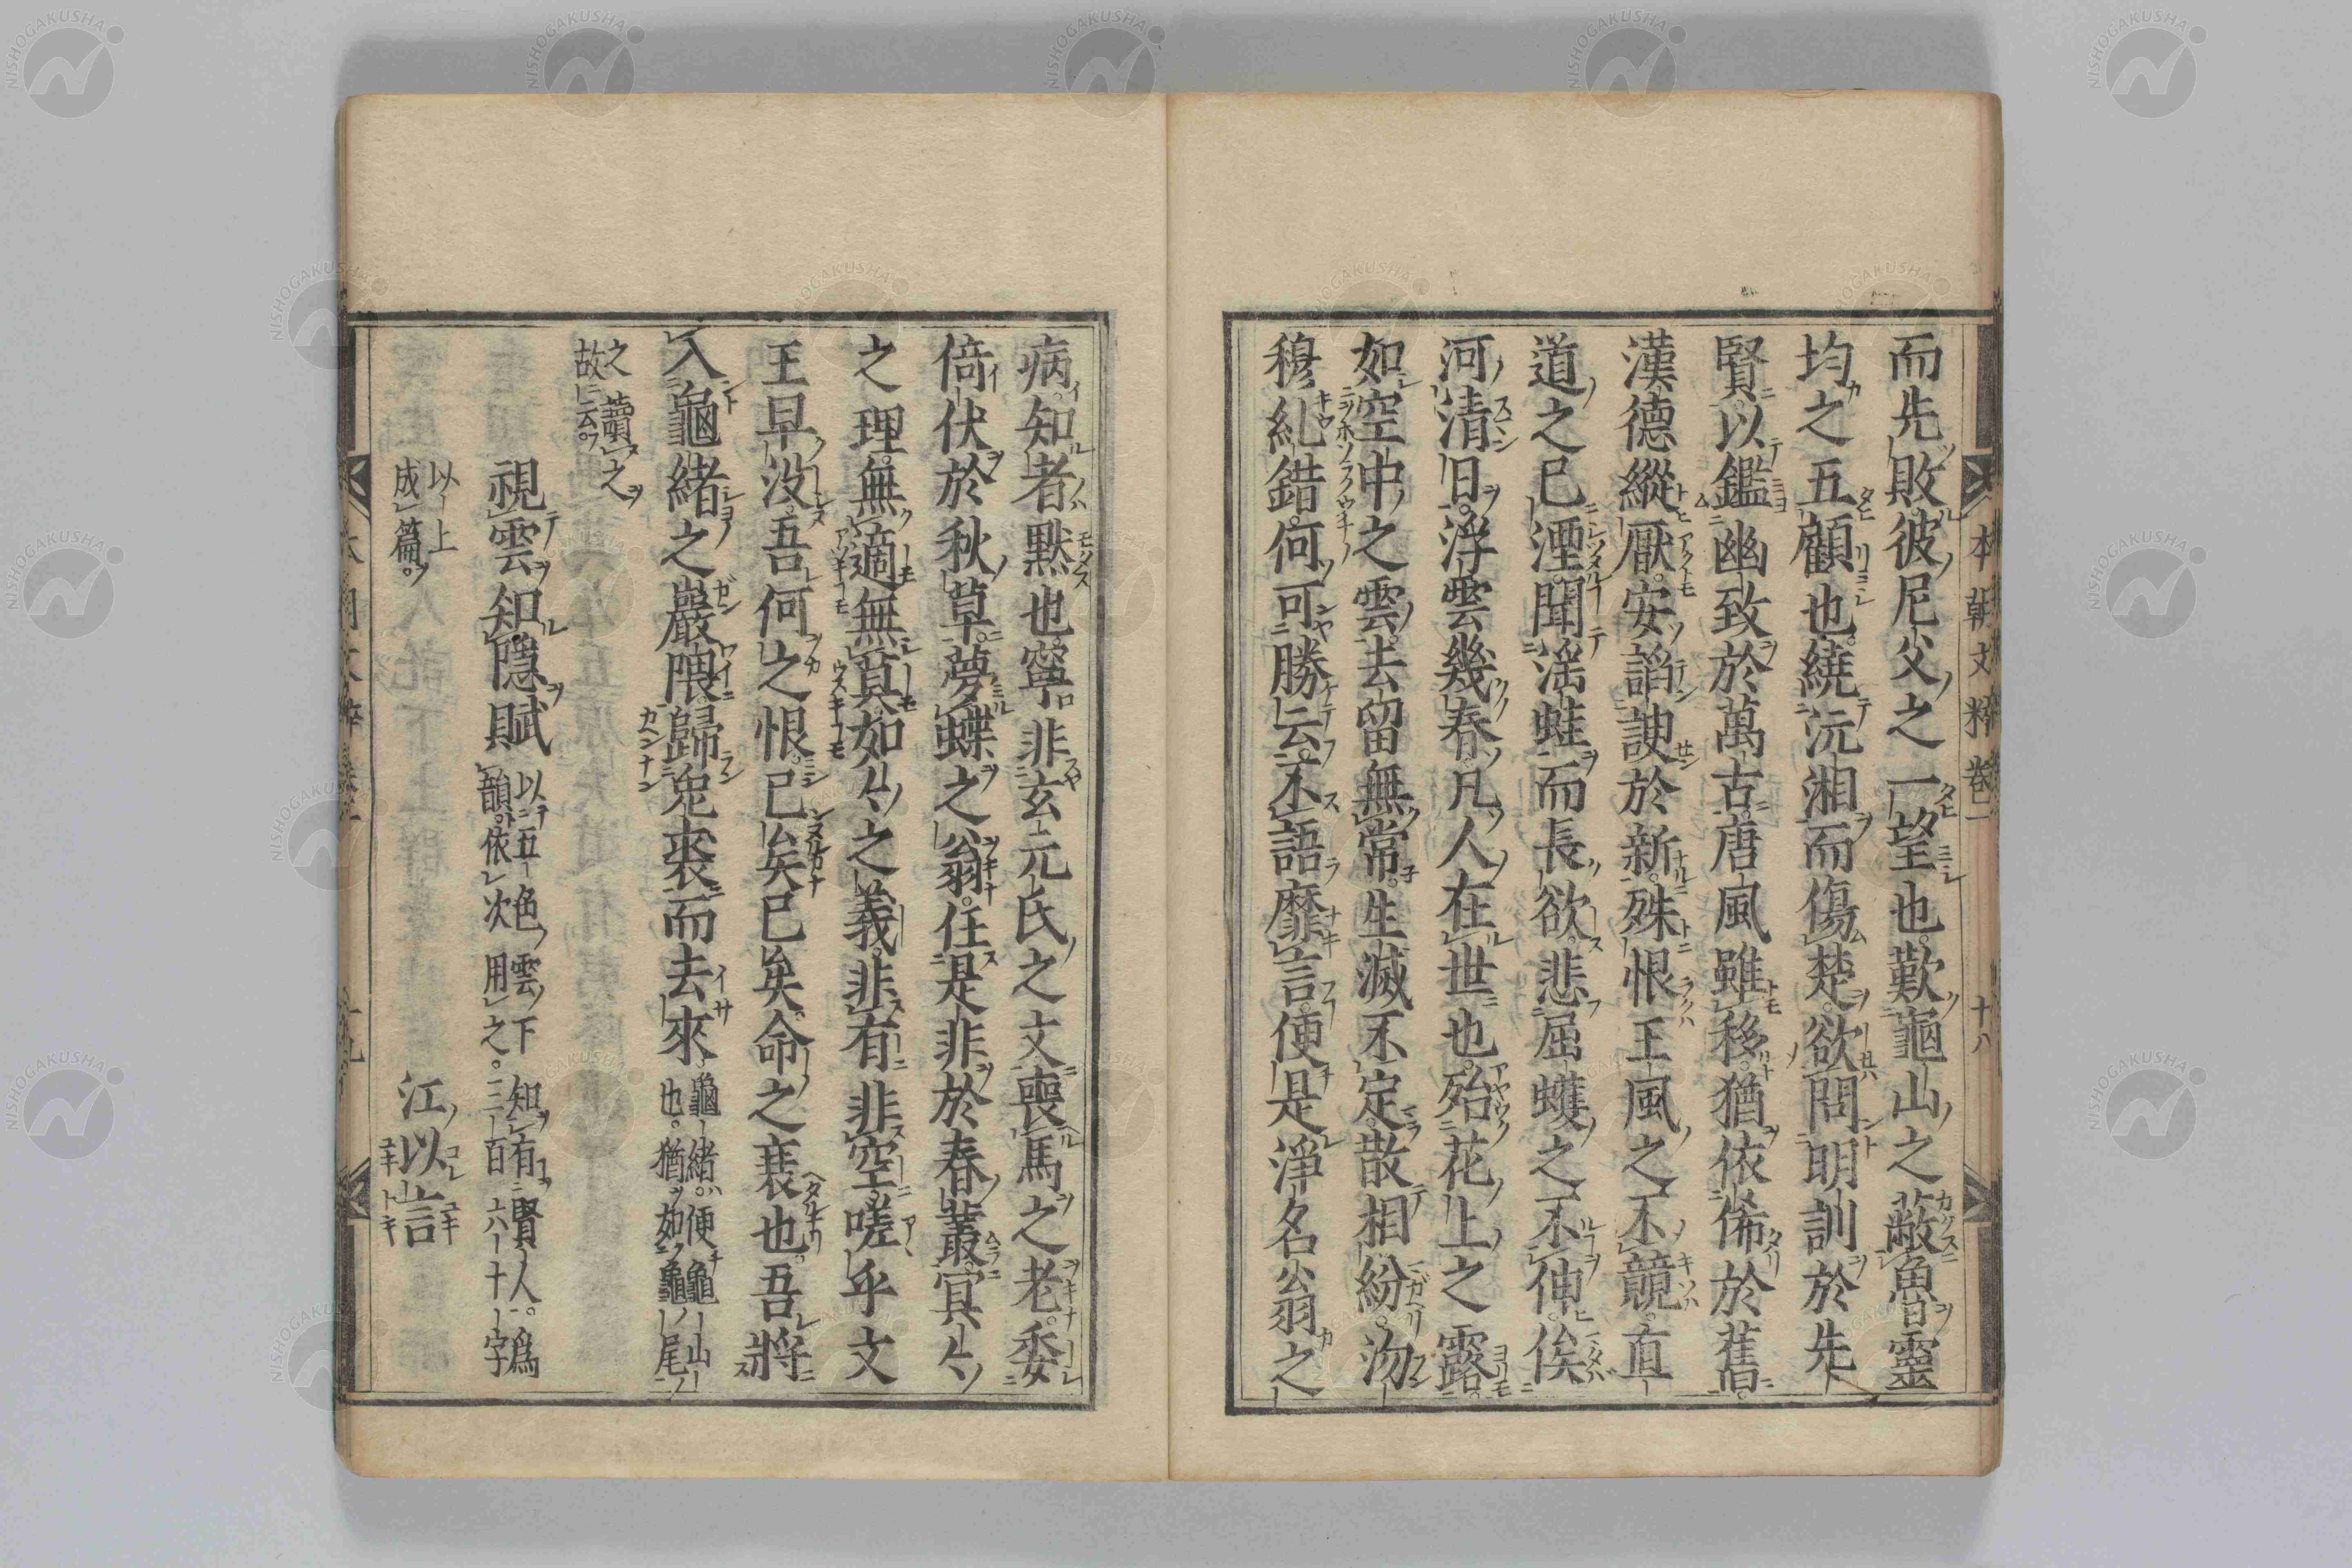 而先敗彼尼父之一望也歎龜山之蔽魯靈
均之五顧也繞沅湘而傷楚欲問明訓於先
賢以鑑幽致於萬古唐風雖移猶依俙於舊
漢德縱厭安諂諛於新殊恨王風之不競直
道之已湮聞淫蛙而長欲悲屈蠖之不伸俟
河清日浮雲幾春凡人在世也殆花上之露
如空中之雲去留無常生滅不定散相紛汤
穆糺錯何可勝云不語靡言便是淨名公之
本朝文粹卷一
十八
病知者默也寧非玄元氏之文喪馬之老委
倚伏於秋草夢蝶之翁任是非於春叢冥々
之理無適無莫如々之義非有非空嗟乎文
王早沒吾何之恨已矣已矣命之衰也吾將
入龜緒之巖隈歸兎裘而去來
龜緒便龜山
也猶如龜尾
之讀之
故云
視雲知隱賦
以五色雲下知有賢人爲
韻依次用之三百六十字
以上
成篇
江以言